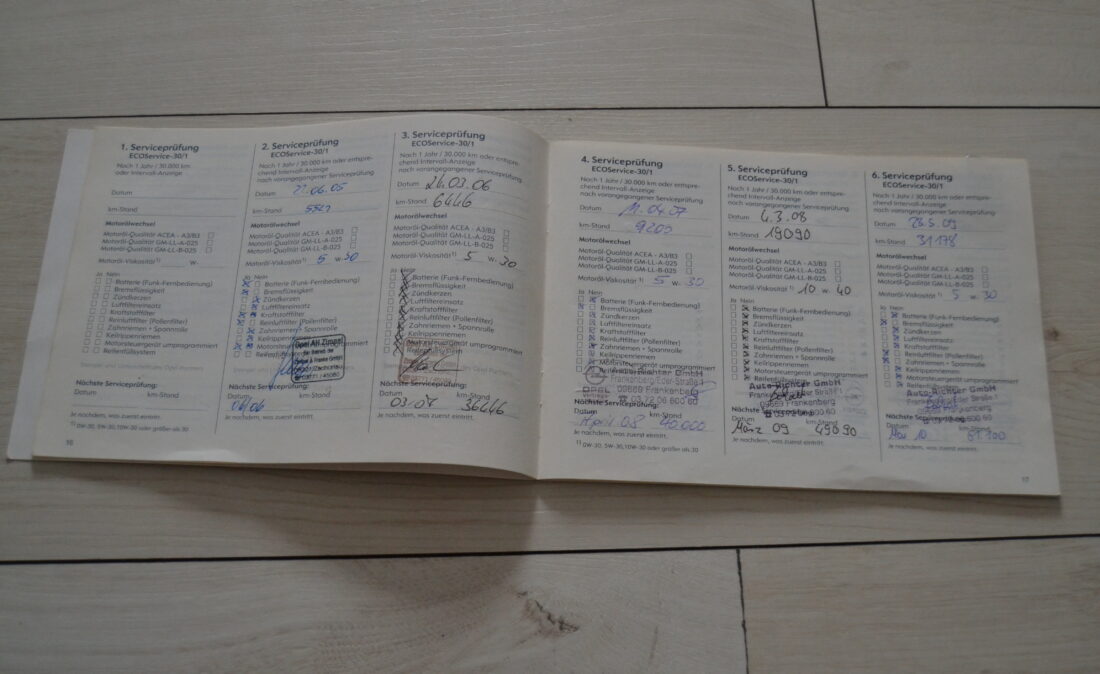 1. Serviceprüfung
ECOService-30/1
Nach 1 Jahr / 30.000 km
oder Intervall-Anzeige
Datum
km-Stand
Motorölwechsel
Motoröl-Qualität ACEA - A3/B3
Motoröl-Qualität GM-LL-A-025
Motoröl-Qualität GM-LL-B-025
Motoröl-Viskosität¹⁾ W-
Ja Nein
Batterie (Funk-Fernbedienung)
Bremsflüssigkeit
Zündkerzen
Luftfiltereinsatz
Kraftstofffilter
Reinluftfilter (Pollenfilter)
Zahnriemen + Spannrolle
Keilrippenriemen
Motorsteuergerät umprogrammiert
Reifenfüllsystem
Nächste Serviceprüfung:
Datum km-Stand
Je nachdem, was zuerst eintritt.
¹⁾ 0W-30, 5W-30, 10W-30 oder größer als 30
16
2. Serviceprüfung
ECOService-30/1
Nach 1 Jahr / 30.000 km oder entspre-
chend Intervall-Anzeige
nach vorangegangener Serviceprüfung
Datum .06.05
km-Stand
Motorölwechsel
Motoröl-Qualität ACEA - A3/B3
Motoröl-Qualität GM-LL-A-025
Motoröl-Qualität GM-LL-B-025
Motoröl-Viskosität¹⁾ 5 W- 30
Ja Nein
Batterie (Funk-Fernbedienung)
Bremsflüssigkeit
Zündkerzen
Luftfiltereinsatz
Kraftstofffilter
Reinluftfilter (Pollenfilter)
Zahnriemen + Spannrolle
Keilrippenriemen
Motorsteuergerät umprogrammiert
Nächste Serviceprüfung:
Datum km-Stand
06/06
Je nachdem, was zuerst eintritt.
3. Serviceprüfung
ECOService-30/1
Nach 1 Jahr / 30.000 km oder entspre-
chend Intervall-Anzeige
nach vorangegangener Serviceprüfung
Datum 24.03.06
km-Stand 6446
Motorölwechsel
Motoröl-Qualität ACEA - A3/B3
Motoröl-Qualität GM-LL-A-025
Motoröl-Qualität GM-LL-B-025
Motoröl-Viskosität¹⁾ 5 W- 30
Batterie (Funk-Fernbedienung)
Bremsflüssigkeit
Zündkerzen
Luftfiltereinsatz
Kraftstofffilter
Reinluftfilter (Pollenfilter)
Zahnriemen + Spannrolle
Keilrippenriemen
Motorsteuergerät umprogrammiert
Nächste Serviceprüfung:
Datum km-Stand
03.07 36446
Je nachdem, was zuerst eintritt.
4. Serviceprüfung
ECOService-30/1
Nach 1 Jahr / 30.000 km oder entspre-
chend Intervall-Anzeige
nach vorangegangener Serviceprüfung
Datum 11.04.07
km-Stand 9200
Motorölwechsel
Motoröl-Qualität ACEA - A3/B3
Motoröl-Qualität GM-LL-A-025
Motoröl-Qualität GM-LL-B-025
Motoröl-Viskosität¹⁾ 5 W- 30
Ja Nein
Batterie (Funk-Fernbedienung)
Bremsflüssigkeit
Zündkerzen
Luftfiltereinsatz
Kraftstofffilter
Reinluftfilter (Pollenfilter)
Zahnriemen + Spannrolle
Keilrippenriemen
Motorsteuergerät umprogrammiert
Auto-Richter GmbH
Frankenberg Eder-Straße 1
OPEL 09669 Frankenberg
☎ 03 72 06 600 60
Nächste Serviceprüfung:
Datum km-Stand
April 08 40.000
Je nachdem, was zuerst eintritt.
¹⁾ 0W-30, 5W-30, 10W-30 oder größer als 30
5. Serviceprüfung
ECOService-30/1
Nach 1 Jahr / 30.000 km oder entspre-
chend Intervall-Anzeige
nach vorangegangener Serviceprüfung
Datum 4.3.08
km-Stand 19090
Motorölwechsel
Motoröl-Qualität ACEA - A3/B3
Motoröl-Qualität GM-LL-A-025
Motoröl-Qualität GM-LL-B-025
Motoröl-Viskosität¹⁾ 10 W- 40
Ja Nein
Batterie (Funk-Fernbedienung)
Bremsflüssigkeit
Zündkerzen
Luftfiltereinsatz
Kraftstofffilter
Reinluftfilter (Pollenfilter)
Zahnriemen + Spannrolle
Keilrippenriemen
Motorsteuergerät umprogrammiert
Auto-Richter GmbH
Datum km-Stand
März 09 49090
Je nachdem, was zuerst eintritt.
6. Serviceprüfung
ECOService-30/1
Nach 1 Jahr / 30.000 km oder entspre-
chend Intervall-Anzeige
nach vorangegangener Serviceprüfung
Datum 26.5.09
km-Stand 31178
Motorölwechsel
Motoröl-Qualität ACEA - A3/B3
Motoröl-Qualität GM-LL-A-025
Motoröl-Qualität GM-LL-B-025
Motoröl-Viskosität¹⁾ 5 W- 30
Ja Nein
Batterie (Funk-Fernbedienung)
Bremsflüssigkeit
Zündkerzen
Luftfiltereinsatz
Kraftstofffilter
Reinluftfilter (Pollenfilter)
Zahnriemen + Spannrolle
Keilrippenriemen
Motorsteuergerät umprogrammiert
Auto-Richter GmbH
Datum km-Stand
Mai 10 61.100
Je nachdem, was zuerst eintritt.
17